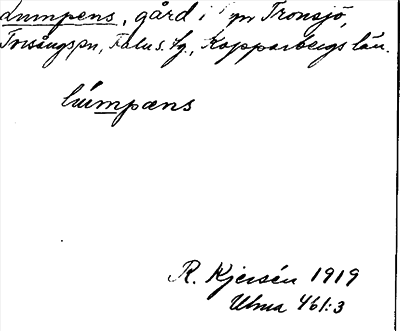 Lumpens, gård i yn Tronsjö,
Torsångs sn, Falu s. lg., Kopparbergs län.
lumpæns
R. Kjersén 1919
Ulma 461:3